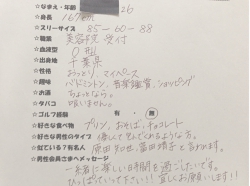 ☆なまえ・年齢 26
☆身長 167cm
☆スリーサイズ 85-60-88
☆職業 美容外交 受付
☆血液型 O型
☆出身地 千葉県
☆性格 おっとり、マイペース
☆趣味 バドミントン、音楽鑑賞、ショッピング
☆お酒 ちょっとなら。
☆タバコ 吸いません。
☆ゴルフ経験 有・無
☆好きな食べ物 プリン、おそば、チョコレート
☆好きな男性のタイプ 優しくて包んでくれるような方。
☆似ている?有名人 原田知世、冨田靖子と言われます。
☆男性会員さまへメッセージ
一緒に楽しい日時間を過ごしたいです。
ひっぱっていって下さい!!宜しくお願いします!!